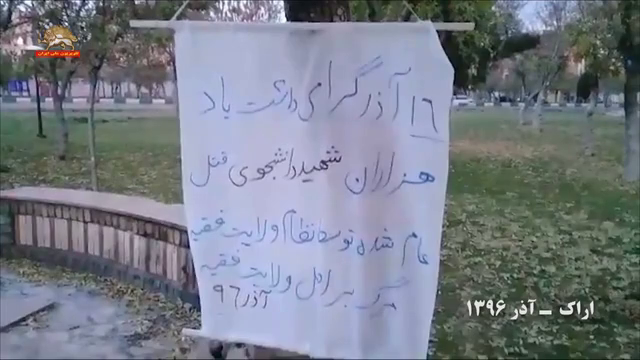 ۱۶ آذر گرامی داشت باد
هزاران شهید دانشجوی قتل
عام شده توسط نظام ولایت فقیه
مرگ بر اصل ولایت فقیه
آذر ۹۶
اراک ـ آذر ۱۳۹۶